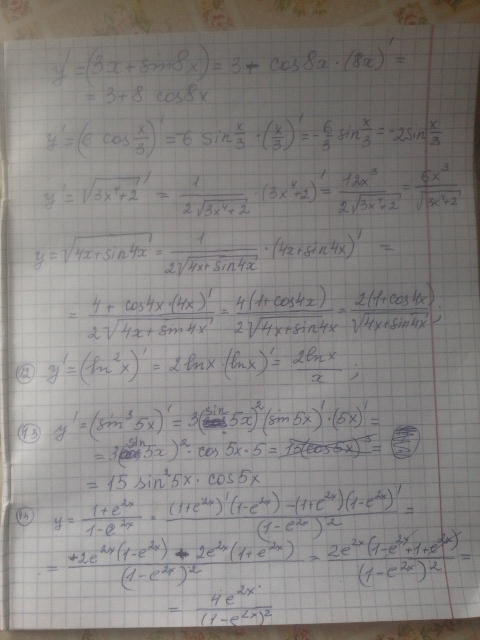 y' = (3x + sin8x)' = 3 + cos8x · (8x)' =
= 3+8 cos8x
y' = (6 cos x/3)' = -6 sin x/3 · (x/3)' = -6/3 sin x/3 = -2 sin x/3
y' = √(3x⁴+2)' = 1/(2√(3x⁴+2)) · (3x⁴+2)' = 12x³/(2√(3x⁴+2)) = 6x³/√(3x⁴+2)
y = √(4x+sin4x)' = 1/(2√(4x+sin4x)) · (4x+sin4x)' =
= (4 + cos4x·(4x)')/(2√(4x+sin4x)) = 4(1+cos4x)/(2√(4x+sin4x)) = 2(1+cos4x)/√(4x+sin4x) ;
12 y' = (ln²x)' = 2lnx·(lnx)' = 2lnx/x ;
13 y' = (sin³5x)' = 3(sin 5x)² (sin5x)'·(5x)' =
= 3(sin 5x)² · cos5x·5 = 15(cos5x)³ =
= 15 sin²5x · cos5x
14 y = (1+e²ˣ)/(1-e²ˣ) = ((1+e²ˣ)'(1-e²ˣ) - (1+e²ˣ)(1-e²ˣ)')/(1-e²ˣ)² =
= (2e²ˣ(1-e²ˣ) + 2e²ˣ(1+e²ˣ))/(1-e²ˣ)² = 2e²ˣ(1-e²ˣ+1+e²ˣ)/(1-e²ˣ)² =
= 4e²ˣ/(1-e²ˣ)²